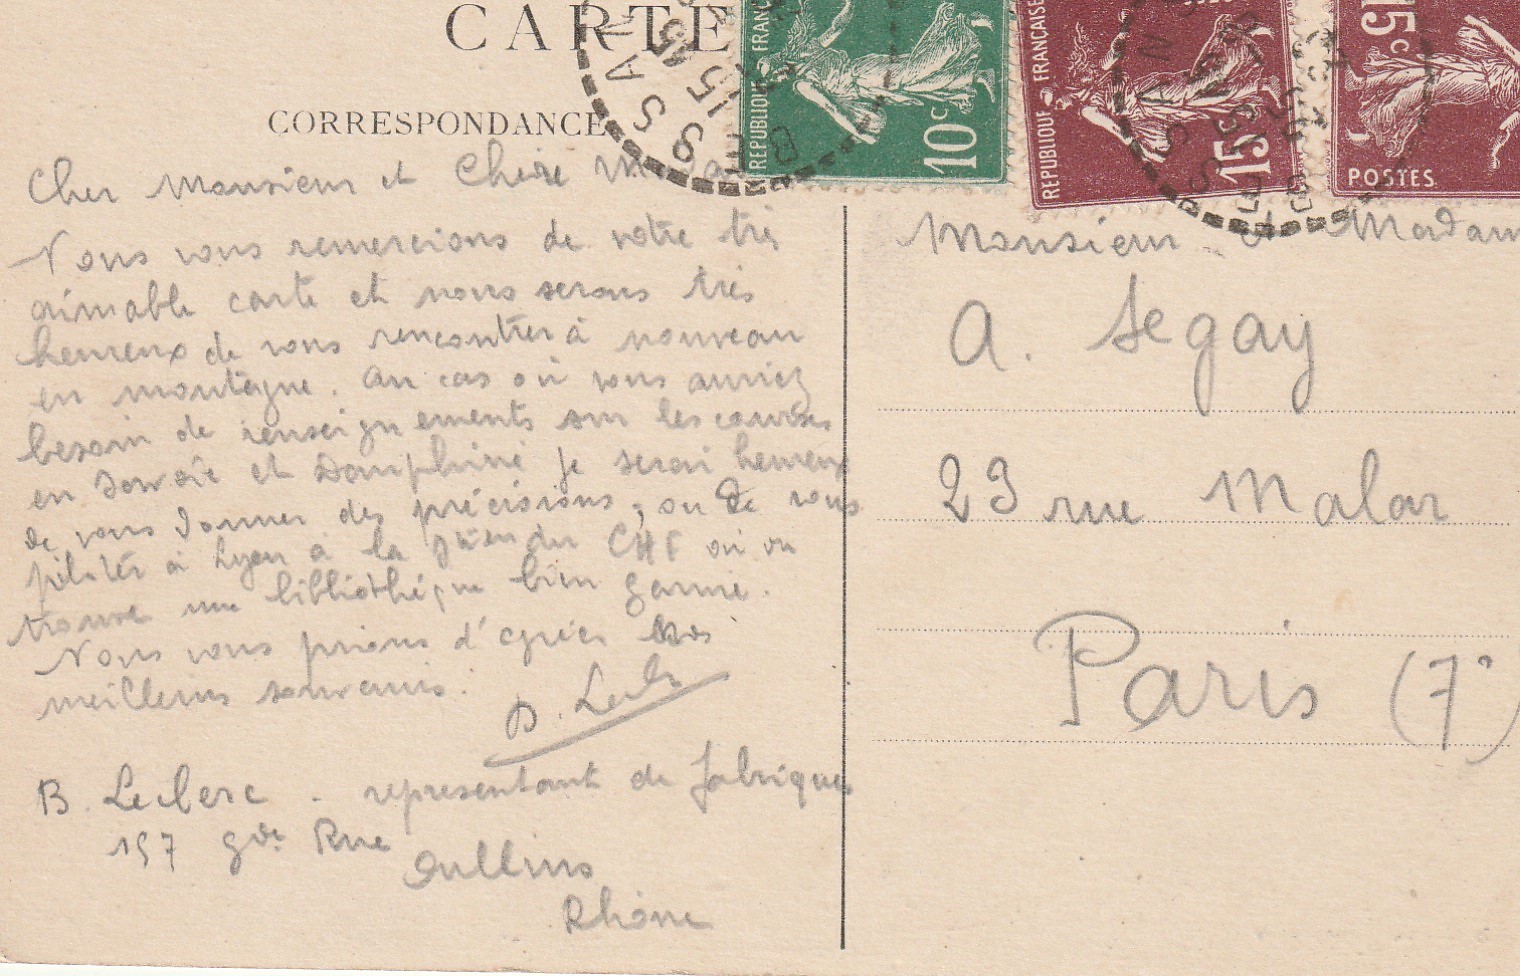 CARTE
CORRESPONDANCE
REPUBLIQUE FRANC
10c
REPUBLIQUE FRANÇAISE
15
15c
POSTES
Cher Monsieur et Chère Mada
Nous vous remercions de votre très
aimable carte et nous serons très
heureux de vous rencontrer à nouveau
en montagne. Au cas où vous auriez
besoin de renseignements sur les courses
en Savoie et Dauphiné je serai heureux
de vous donner des précisions, ou de vous
à Lyon à la du CHF où on
trouve une bibliothèque bien garnie.
Nous vous prions d'agréer nos
meilleurs souvenirs.
B. Leclerc - représentant de fabriques
197 gde Rue
Oullins
Rhône
Monsieur et Madam
A. Segay
23 rue Malar
Paris (7°)